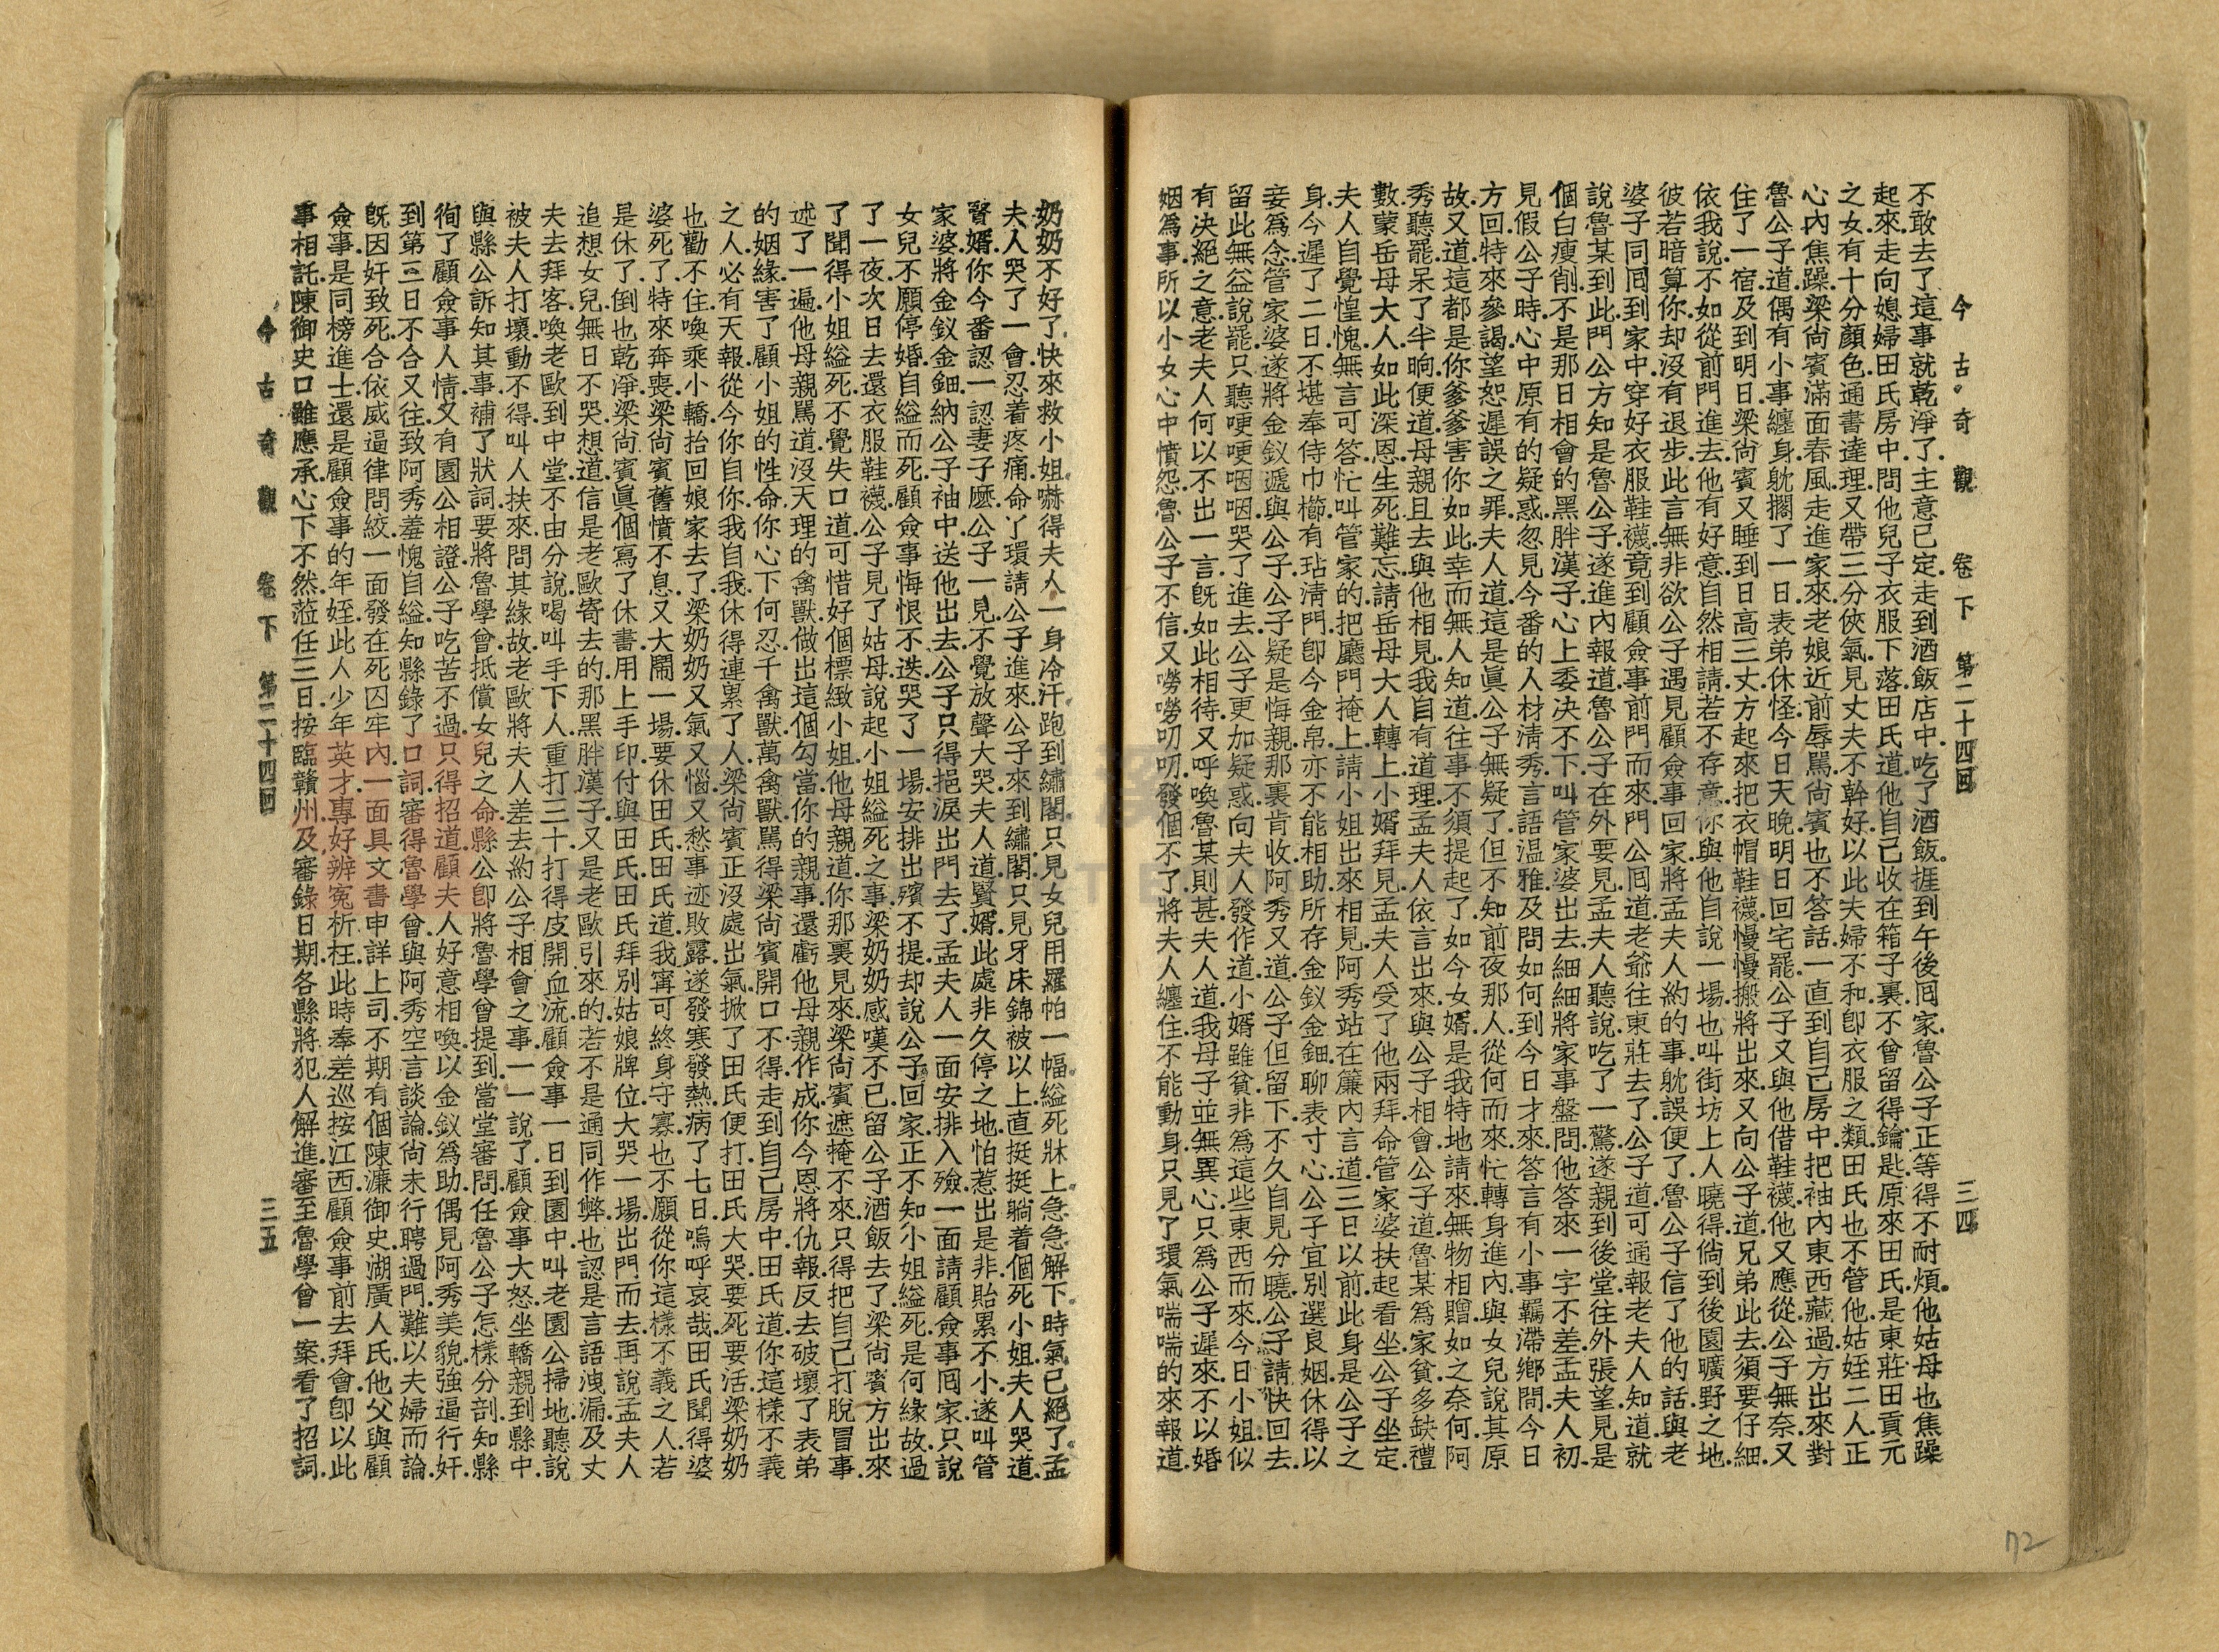 今古奇觀 卷下 第二十四回 三四
不敢去了.這事就乾淨了.主意已定.走到酒飯店中.吃了酒飯.捱到午後回家.魯公子正等得不耐煩.他姑母也焦躁
起來.走向媳婦田氏房中.問他兒子衣服下落.田氏道.他自己收在箱子裏.不曾留得鑰匙.原來田氏是東莊田貢元
之女.有十分顏色.通書達理.又帶三分俠氣.見丈夫不幹好.以此夫婦不和.卽衣服之類.田氏也不管他.姑姪二人.正
心內焦躁.梁尙賓滿面春風.走進家來.老娘近前辱罵.尙賓也不答話.一直到自己房中.把袖內東西藏過.方出來對
魯公子道.偶有小事纏身.躭擱了一日.表弟休怪.今日天晚.明日回宅罷.公子又與他借鞋襪.他又應從.公子無奈.又
住了一宿.及到明日.梁尙賓又睡到日高三丈.方起來.把衣帽鞋襪.慢慢搬將出來.又向公子道.兄弟此去.須要仔細.
依我說.不如從前門進去.他有好意.自然相請.若不存意.你與他自說一場.也叫街坊上人曉得.倘到後園曠野之地.
彼若暗算.你却沒有退步.此言無非欲公子遇見顧僉事回家.將孟夫人約的事躭誤便了.魯公子信了他的話.與老
婆子同回到家中.穿好衣服鞋襪.竟到顧僉事前門而來.門公回道.老爺往東莊去了.公子道.可通報老夫人知道.就
說魯某到此.門公方知是魯公子.遂進內報道.魯公子在外要見.孟夫人聽說.吃了一驚.遂親到後堂.往外張望.見是
個白瘦削.不是那日相會的黑胖漢子.心上委決不下.叫管家婆出去.細細將家事盤問.他答來一字不差.孟夫人初
見假公子時.心中原有的疑惑.忽見今番的人材淸秀.言語溫雅.及問如何到今日才來.答言有小事羈滯鄉間.今日
方回.特來參謁.望恕遲誤之罪.夫人道.這是眞公子無疑了.但不知前夜那人.從何而來.忙轉身進內.與女兒說其原
故.又道.這都是你爹爹害你如此.幸而無人知道.往事不須提起了.如今女婿.是我特地請來.無物相贈.如之奈何.阿
秀聽罷.呆了半晌.便道.母親且去與他相見.我自有道理.孟夫人依言出來.與公子相會.公子道.魯某爲家貧多缺禮
數.蒙岳母大人如此深恩.生死難忘.請岳母大人轉上.小婿拜見.孟夫人受了他兩拜.命管家婆扶起看坐.公子坐定.
夫人自覺惶愧.無言可答.忙叫管家的把廳門掩上.請小姐出來相見.阿秀站在簾內言道.三日以前.此身是公子之
身.今遲了二日.不堪奉侍巾櫛.有玷淸門.卽今金帛.亦不能相助.所存金釵金鈿.聊表寸心.公子宜別選良姻.休得以
妾爲念.管家婆遂將金釵遞與公子.公子疑是悔親.那裏肯收.阿秀又道.公子但留下.不久自見分曉.公子請快回去.
留此無益.說罷.只聽哽哽咽咽.哭了進去.公子更加疑惑.向夫人發作道.小婿雖貧.非爲這些東西而來.今日小姐.似
有决絕之意.老夫人何以不出一言.旣如此相待.又呼喚魯某則甚.夫人道.我母子並無異心.只爲公子遲來.不以婚
姻爲事.所以小女心中憤怨.魯公子不信.又嘮嘮叨叨.發個不了.將夫人纏住.不能動身.只見丫環氣喘喘的來報道.
奶奶不好了.快來救小姐.嚇得夫人一身冷汗.跑到繡閣.只見女兒用羅帕一幅.縊死牀上.急急解下時.氣已絕了.孟
夫人哭了一會.忍着疼痛.命丫環請公子進來.公子來到繡閣.只見牙床錦被以上.直挺挺躺着個死小姐.夫人哭道.
賢婿.你今番認一認妻子麽.公子一見.不覺放聲大哭.夫人道.賢婿.此處非久停之地.怕惹出是非.貽累不小.遂叫管
家婆.將金釵金鈿.納公子袖中.送他出去.公子只得挹淚出門去了.孟夫人一面安排入殮.一面請顧僉事回家.只說
女兒不願停婚.自縊而死.顧僉事悔恨不迭.哭了一場.安排出殯不提.却說公子回家.正不知小姐縊死是何緣故.過
了一夜.次日去還衣服鞋襪.公子見了姑母.說起小姐縊死之事.梁奶奶感嘆不已.留公子酒飯去了.梁尙賓方出來
了.聞得小姐縊死.不覺失口道.可惜好個標緻小姐.他母親道.你那裏見來.梁尙賓遮掩不來.只得把自己打脫冒事.
述了一遍.他母親罵道.沒天理的禽獸.做出這個勾當.你的親事.還虧他母親作成你.今恩將仇報.反去破壞了表弟
的姻緣.害了顧小姐的性命.你心下何忍.千禽獸萬禽獸.罵得梁尙賓開口不得.走到自己房中.田氏道.你這樣不義
之人.必有天報.從今你自你.我自我.休得連累了人.梁尙賓正沒處出氣.掀了田氏便打.田氏大哭.要死要活.梁奶奶
也勸不住.喚乘小轎.抬回娘家去了.梁奶奶又氣又惱又愁事迹敗露.遂發寒發熱.病了七日.嗚呼哀哉.田氏聞得婆
婆死了.特來奔喪.梁尙賓舊憤不息.又大鬧一場.要休田氏.田氏道.我寧可終身守寡.也不願從你這樣不義之人.若
是休了.倒也乾淨.梁尙賓眞個寫了休書.用上手印付與田氏.田氏拜別姑娘牌位.大哭一場.出門而去.再說孟夫人
追想女兒.無日不哭.想道.信是老歐寄去的.那黑胖漢子.又是老歐引來的.若不是通同作弊.也認是言語洩漏.及丈
夫去拜客.喚老歐到中堂.不由分說.喝叫手下人.重打三十.打得皮開血流.顧僉事一日到園中.叫老園公掃地.聽說
被夫人打壞.動不得.叫人扶來.問其緣故.老歐將夫人差去約公子相會之事.一一說了.顧僉事大怒.坐轎親到縣中.
與縣公訴知其事.補了狀詞.要將魯學曾抵償女兒之命.縣公卽將魯學曾提到當堂審問.任魯公子怎樣分剖.知縣
徇了顧僉事人情.又有園公相證.公子吃苦不過.只得招道.顧夫人好意相喚.以金釵爲助.偶見阿秀美貌.強逼行奸.
到第三日.不合又往.致阿秀羞愧自縊.知縣錄了口詞.審得魯學曾與阿秀.空言談論.尙未行聘過門.難以夫婦而論.
旣因奸致死.合依威逼律問絞.一面發在死囚牢內.一面具文書申詳上司.不期有個陳濂御史.湖廣人氏.他父與顧
僉事.是同榜進士.還是顧僉事的年姪.此人少年英才.專好辨冤析枉.此時奉差巡按江西.顧僉事前去拜會.卽以此
事相託.陳御史口雖應承.心下不然.蒞任三日.按臨贛州.及審錄日期.各縣將犯人解進審.至魯學曾一案.看了招詞.
今古奇觀 卷下 第二十四回 三五
72